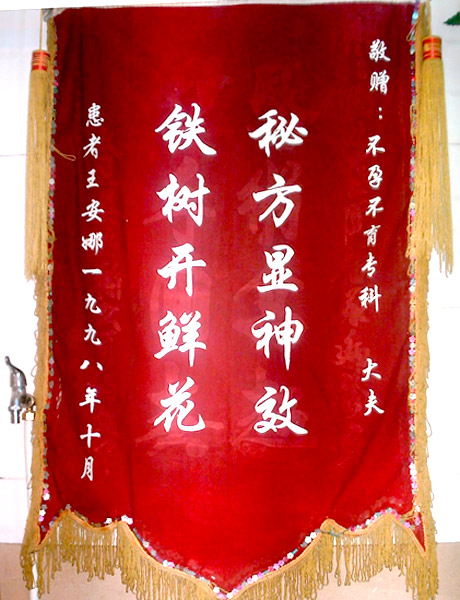 敬赠：不孕不育专科 大夫
秘方显神效
铁树开鲜花
患者王安娜一九九八年十月